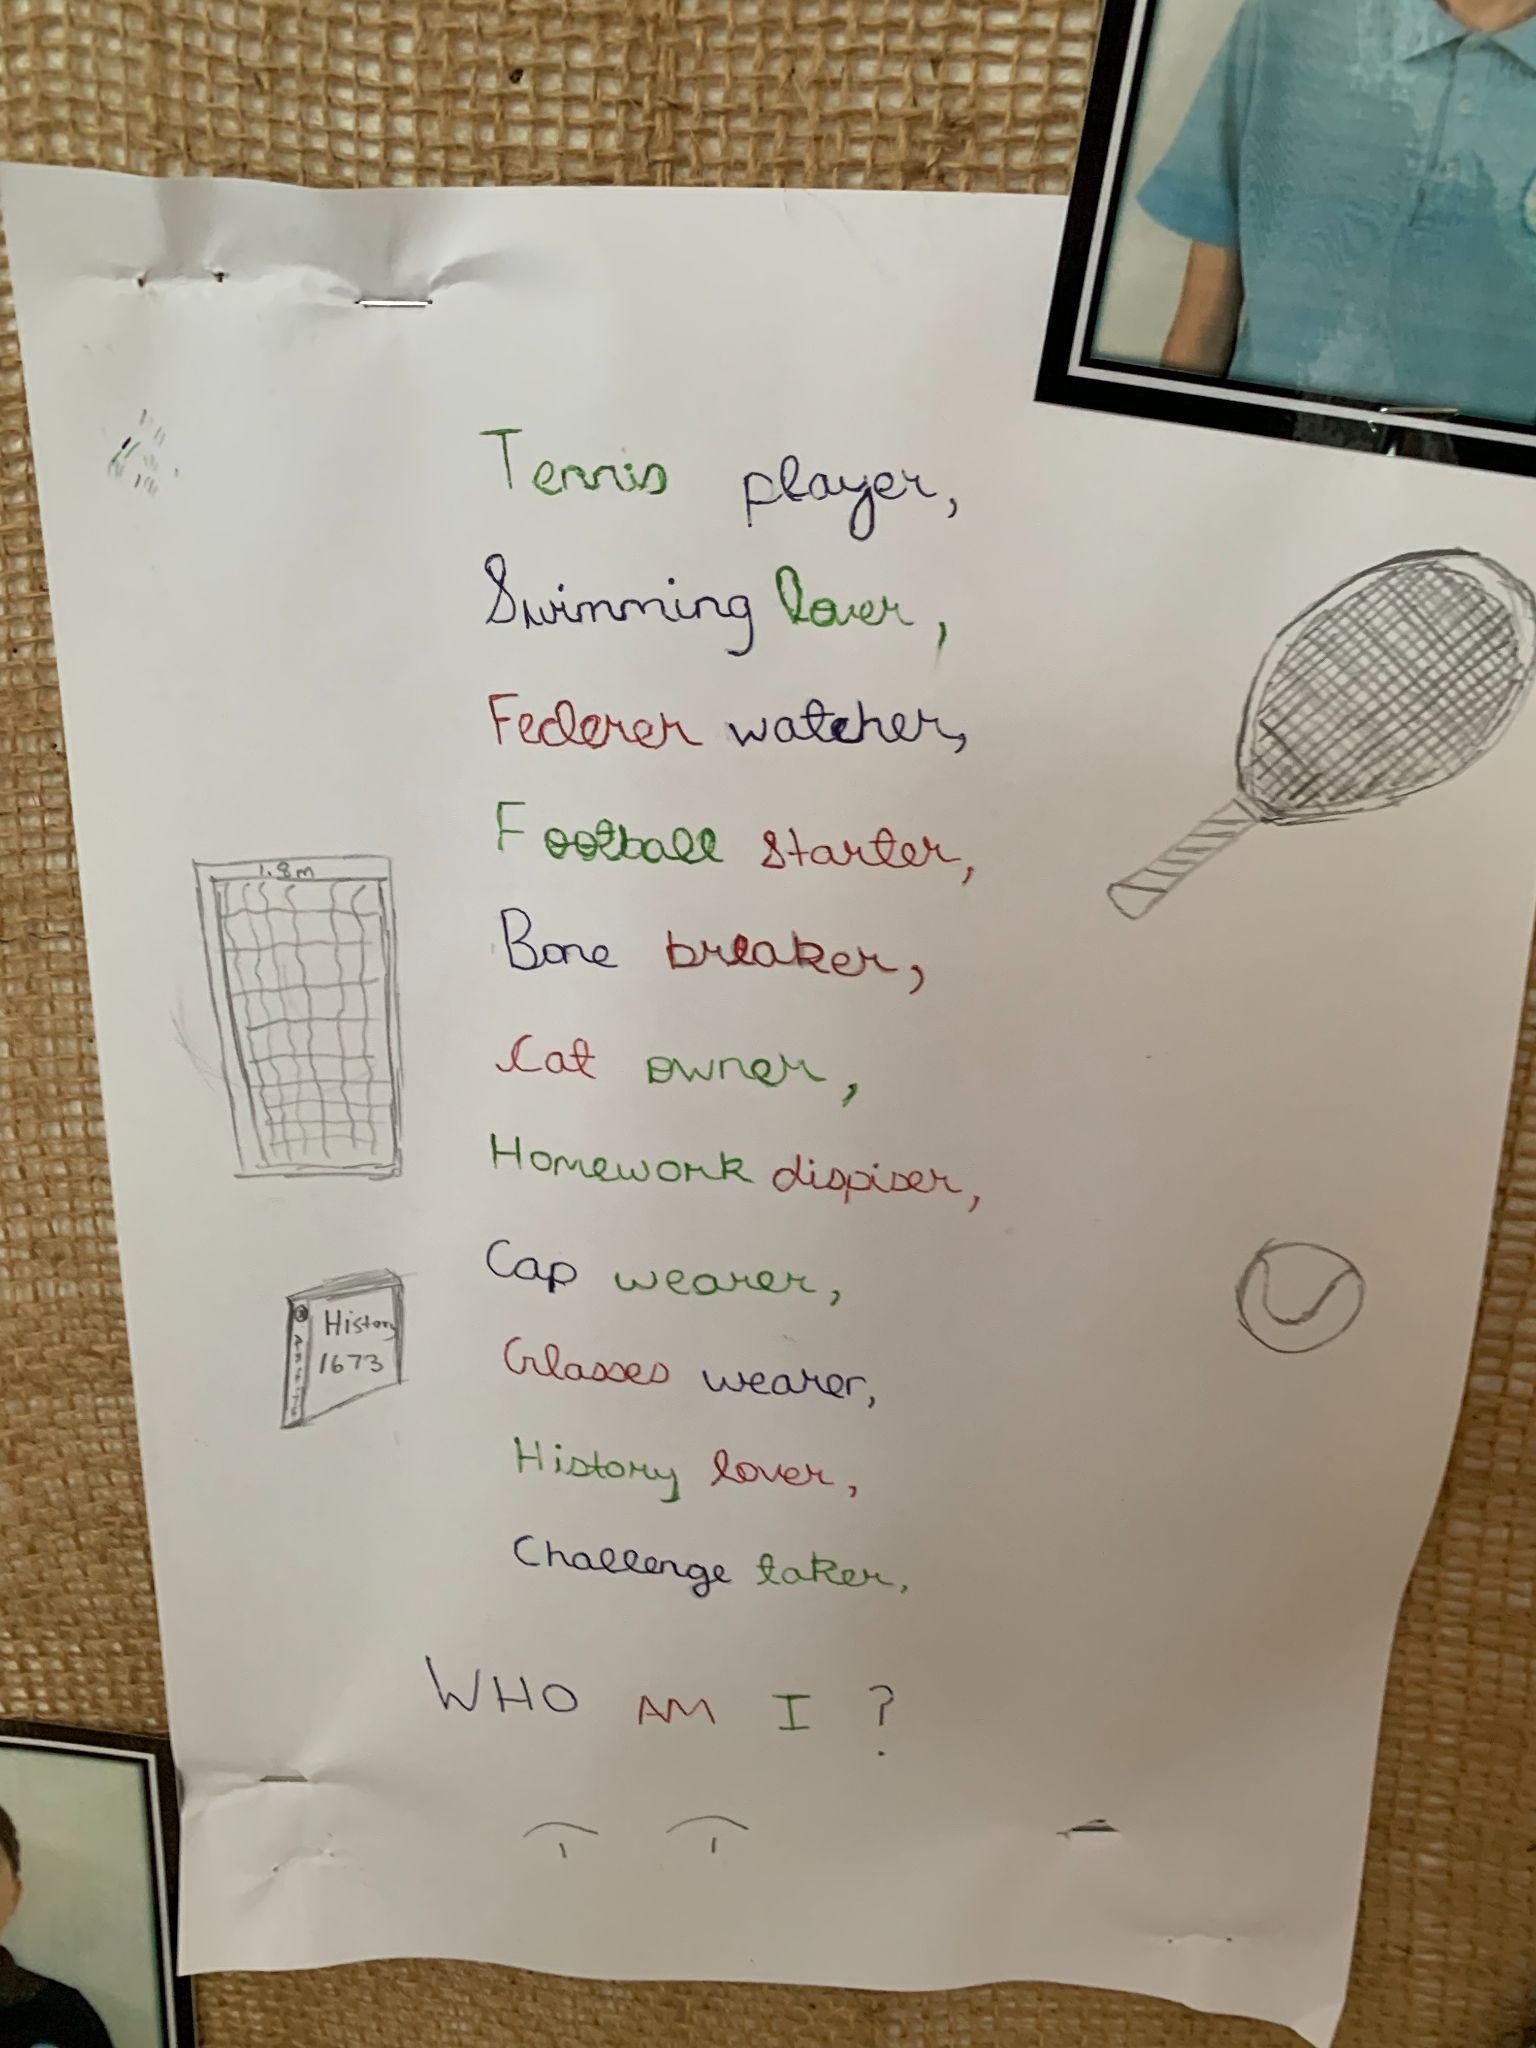 Tennis player,
Swimming lover,
Federer watcher,
Football starter,
1.8m
Bone breaker,
Cat owner,
Homework dispiser,
Cap wearer,
History
1673
Glasses wearer,
History lover,
Challenge taker,
WHO AM I ?